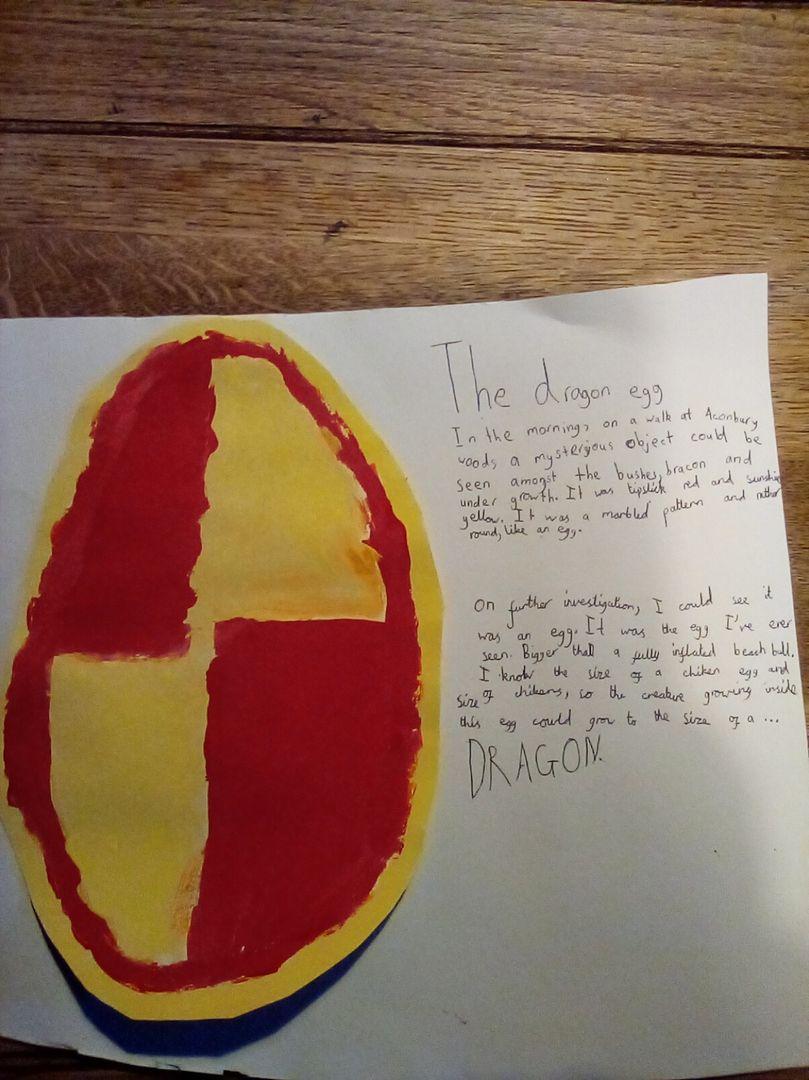 The dragon egg
In the morning, on a walk at Aconbury
woods a mysterious object could be
seen amongst the bushes, bracon and
under growth. It was lipstick red and sunshine
yellow. It was a marbled pattern and rather
round, like an egg.
On further investigation, I could see it
was an egg. It was the egg I've ever
seen. Bigger than a fully inflated beach ball.
I know the size of a chiken egg and
size of chikens, so the creature growing inside
this egg could grow to the size of a ...
DRAGON.